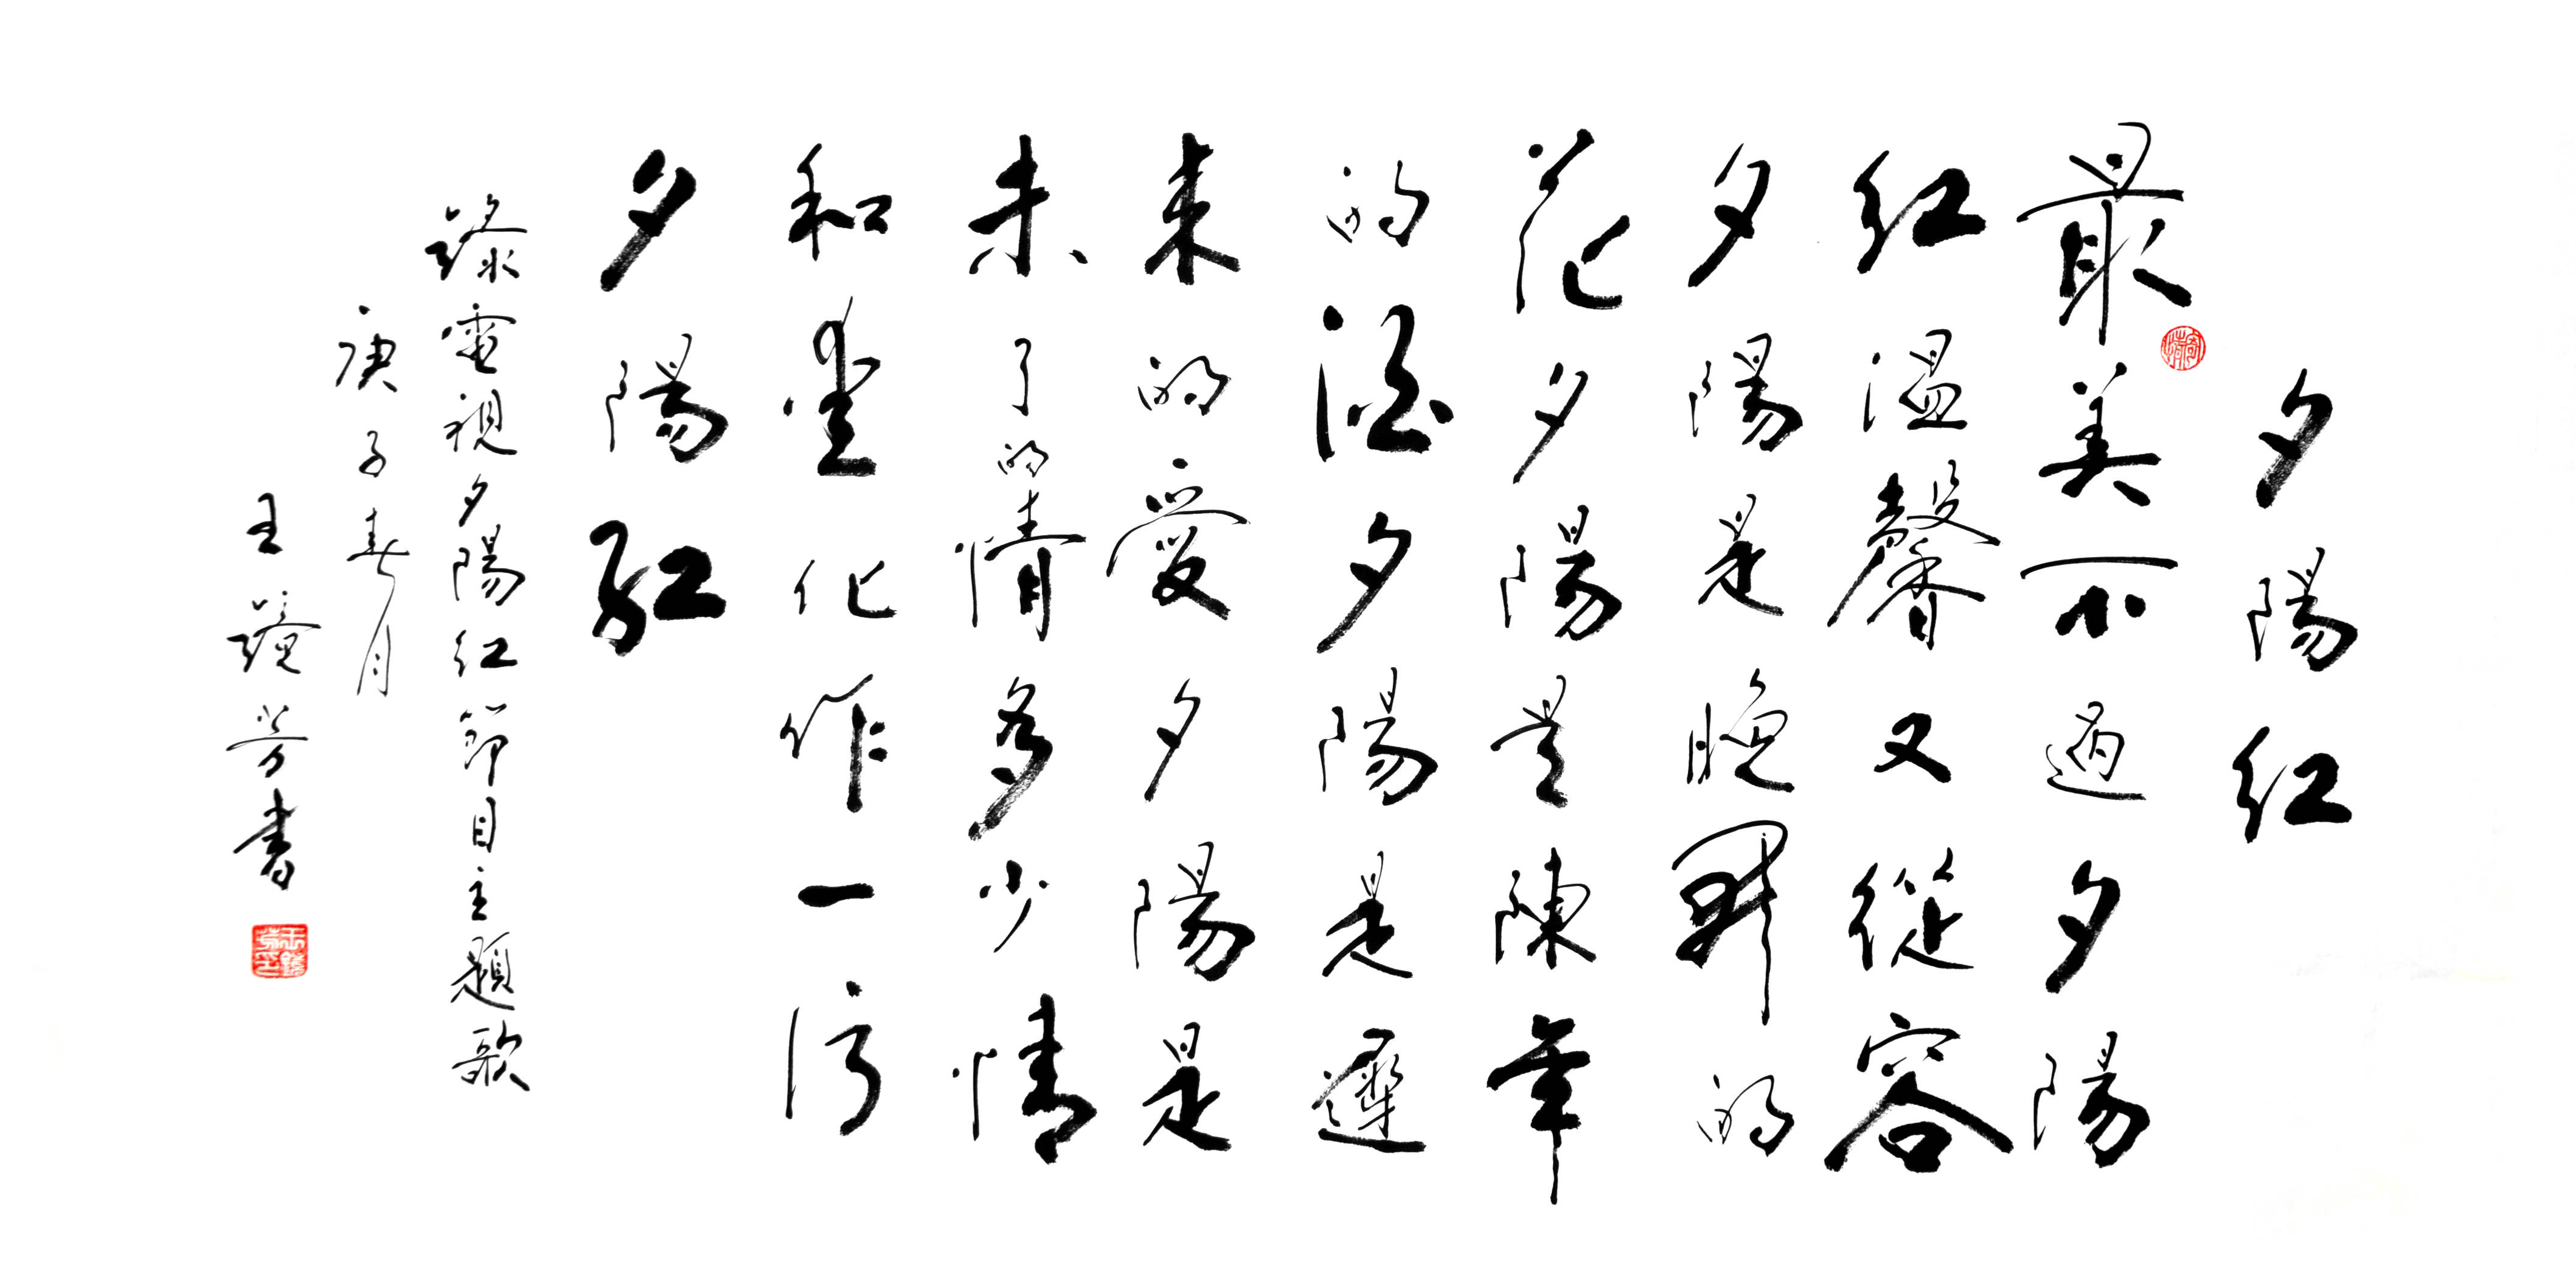 夕陽紅
最美不過夕陽
紅溫馨又從容
夕陽是晚開的
花夕陽是陳年
的酒夕陽是遲
來的愛夕陽是
未了的情多少情
和化作一
夕陽紅
錄電視夕陽紅節目主題歌
庚子春月
王芳書